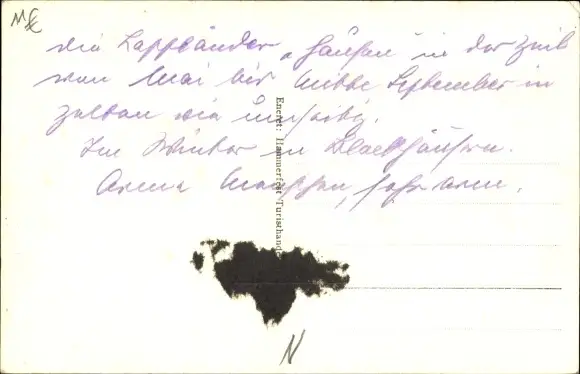 die Lappländer „hausen“ in der Zeit
von Mai bis Mitte September in
Zelten wie umseitig.
Im Winter in Blockhäusern.
Arme Menschen, sehr arm.
Eneret: Hammerfest Turisthandel
N